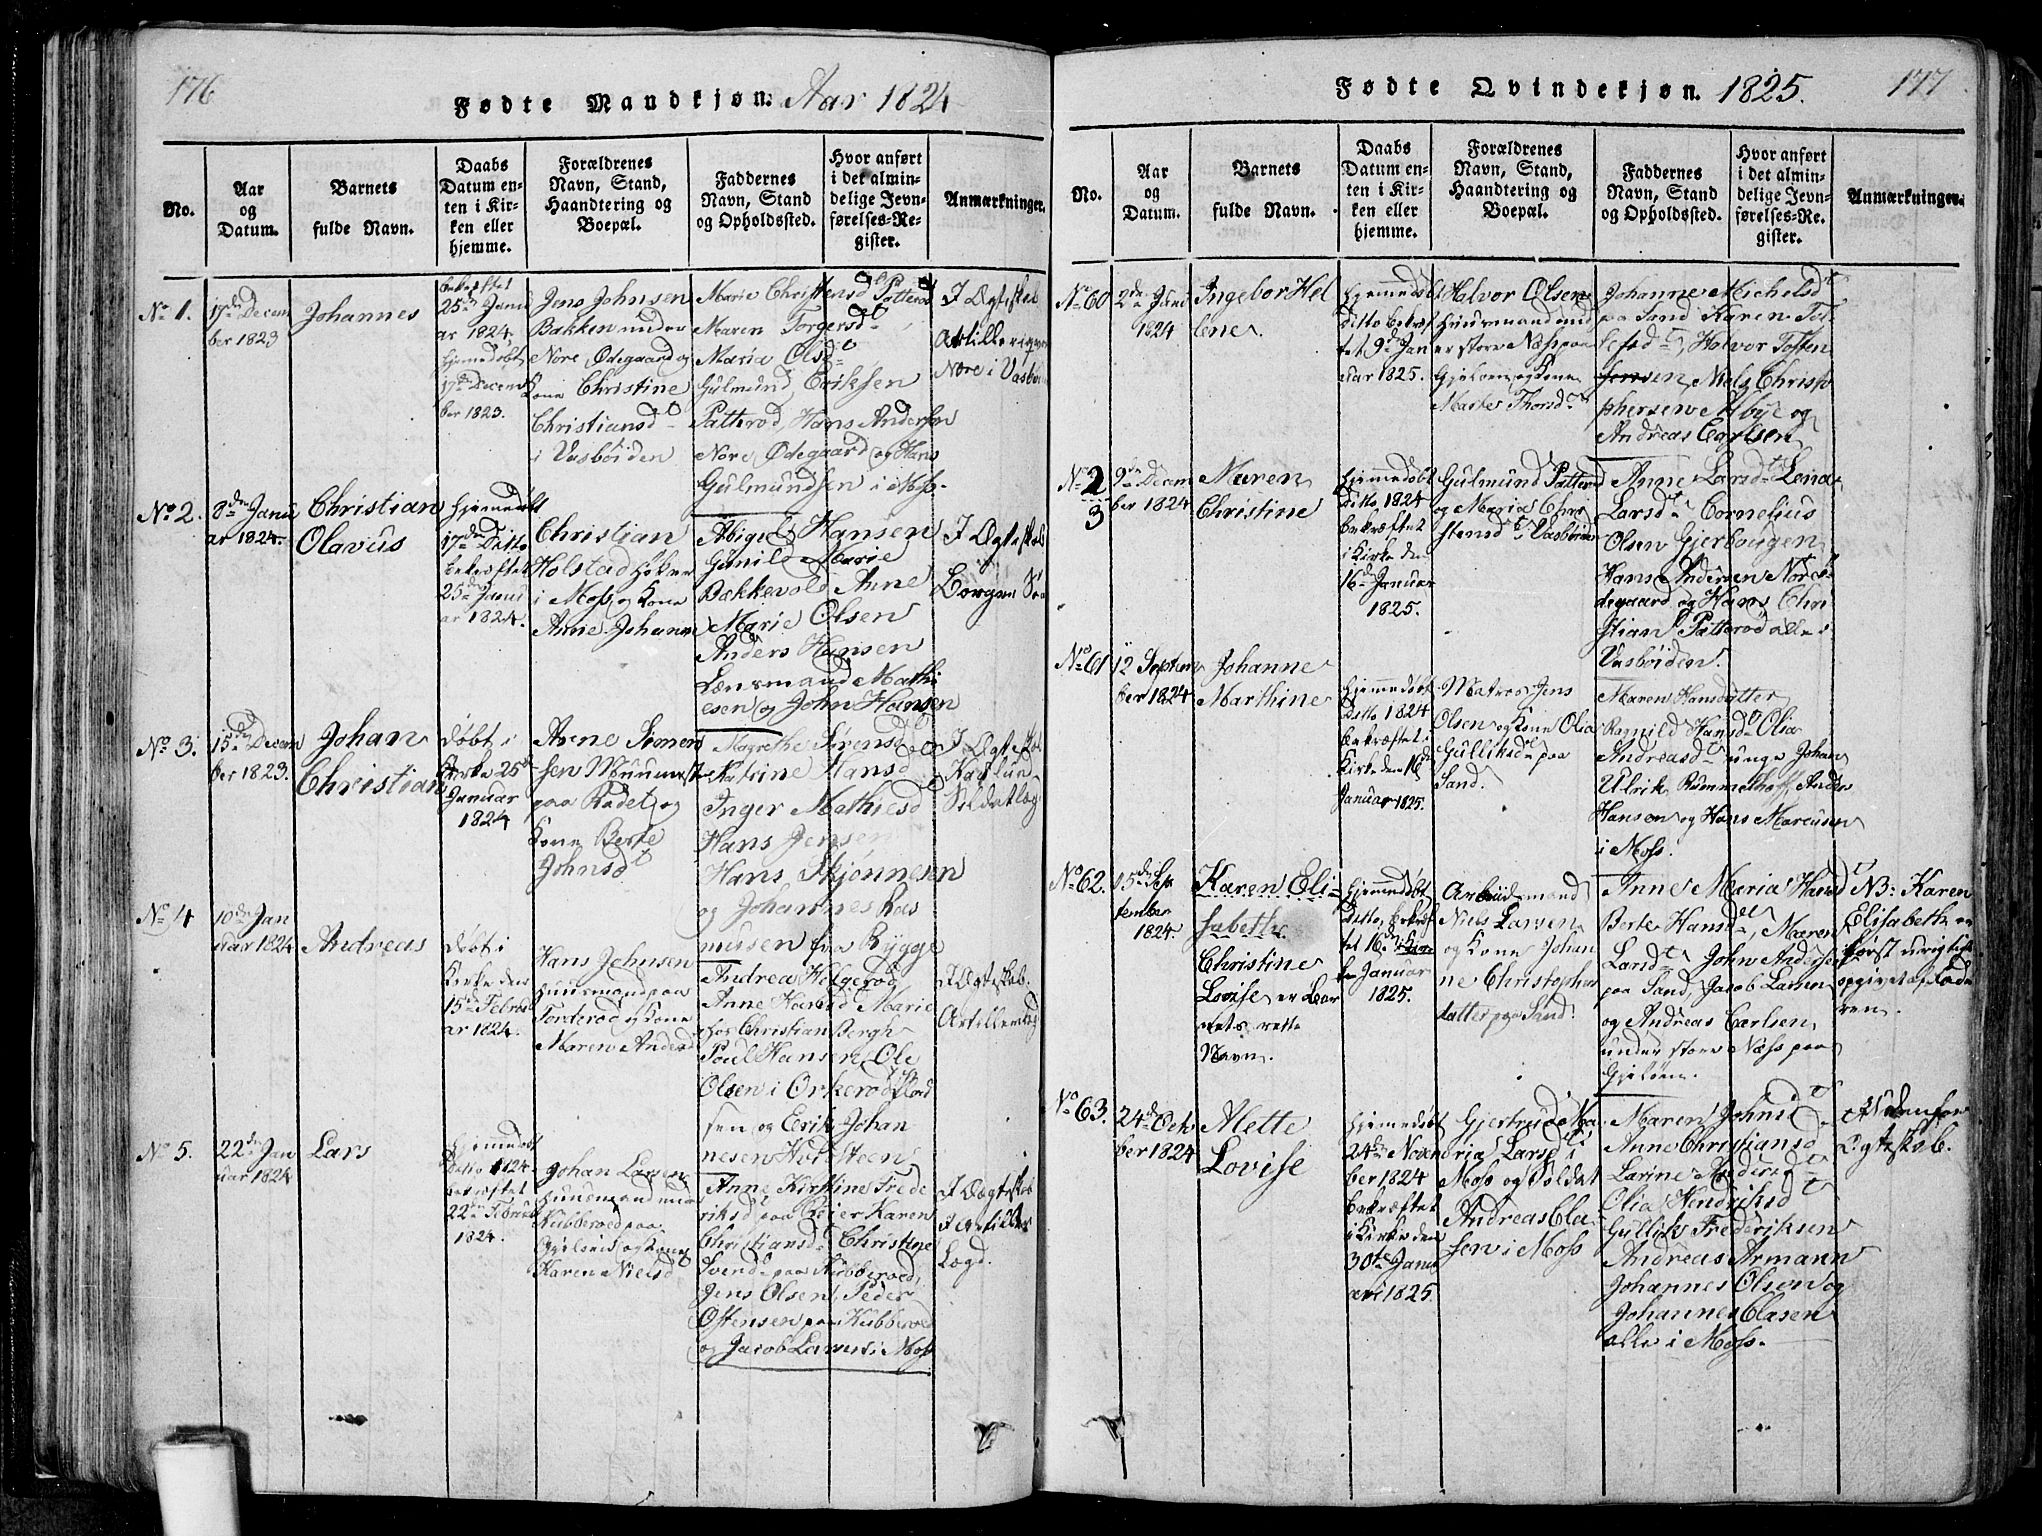 176
Fødte Mandkjøn. Aar 1824
No.
Aar
og
Datum.
Barnets
fulde Navn.
Daabs
Datum en-
ten i Kir-
ken eller
hjemme.
Forældrenes
Navn, Stand,
Haandtering og
Boepæl.
Faddernes
Navn, Stand
og Opholdssted.
Hvor anført
i det almin-
delige Jevn-
førelses-Re-
gister.
Anmærkninger.
No 1.
17de Decem
ber 1823
Johannes
bekræftet
25de Janu
ar 1824,
hjemedøbt
17de Decem
ber 1823.
Jens Johnsen
Bakken under
Nore Ødegaard og
Kone Christine
Christiansd
i Vasbøiden
Marie Christensd Patterød
Maren Torgersd
Maria Olsd
Gulmund Eriksen
Patterød, Hans Andersen
Nore Ødegaard og Hans
Gulmundsen i Moss.
I Ægteskab
Nore i Vasbøi
No 2.
8de Janu
ar 1824.
Christian
Olavus
hjemedøbt
17de Ditto
bekræftet
25de Janu
ar 1824.
Christian
Holstad Høker
i Moss og Kone
Anne Johann
Abigel Hansen
Gunild Marie
Bakkevold Anne
Marie Olsen
Anders Hansen
Lænsmand Mathi
esen og John Hansen
I Ægteskab
No 3.
15de Decem
ber 1823.
Johan
Christian
døbt i
Kirke 25de
Januar
1824
Arne Simen
sen Muurmest
paa Radet og
Kone Berte
Johnsd
Magrethe Sørensd
Katrine Hansd
Inger Mathiesd
Hans Jensen
Hans Skjønnesen
og Johannes Ras
mussen fra Rygge
I Ægteskab
No 4
10de Jan
uar 1824
Andreas
døbt i
Kirke den
15de Febru
ar 1824.
Hans Johnsen
Huusmand paa
Torderød og Kone
Maren Andersd
Andrea Helgerød
Anne Hansd Marie
hos Christian Bergh
Poul Hansen Ole
Olsen i Orkerød
sen og Erik Johan
nesen Hvidsteen
I Ægteskab.
No 5.
22de Jan
uar 1824
Lars
hjemedøbt
Ditto 1824.
bekræftet
22de Febru
1824.
Johan Larsen
Huusmand
Kubberød paa
Gjeløen og Kone
Karen Nielsd
Anne Kirstine Frede
riksd paa Karen
Christiansd Christine
Svend paa Kubberød,
Jens Olsen, Peder
Ostensen paa Kubberød
og Jacob Larsen i Moss
I Ægteskab
Lægd.
Fødte Qvindekjøn. 1825.
177
No.
Aar
og
Datum.
Barnets
fulde Navn.
Daabs
Datum en-
ten i Kir-
ken eller
hjemme.
Forældrenes
Navn, Stand,
Haandtering og
Boepæl.
Faddernes
Navn, Stand
og Opholdssted.
Hvor anført
i det almin-
delige Jevn-
førelses-Re-
gister.
Anmærkninger.
No 60
2de Juni
1824
Ingebor Hel
lene
hjemmedøbt
Ditto bekræf
tet 9de Jan
uar 1825.
Halvor Olsen
Huusmand und
er store Næss paa
Gjeløen og Kone
Marte Thorsd
Johanne Michelsd
paa Sand Karen Tol
lefsd, Halvor Tosten
Jensen, Niels Christo
phersen Albye og
Andreas Carlsen
No 2
3
9de Decem
ber 1824
Maren
Christine
hjemmedøbt
Ditto 1824
bekræftet
i Kirke den
16de Januar
1825.
Gulmund Patterød
og Maria Chri
stensd i Vasbøiden
Anne Larsd Lena
Larsd Cornelius
Olsen Gjerbougen
Hans Andersen Nore Ø
degaard og Hans Chri
stian Patterød alle i
Vasbøiden.
No 61
12 Septem
ber 1824
Johanne
Marthine
hjemmedøbt
Ditto 1824
bekræftet i
Kirke den 16de
Januar 1825.
Matros Jens
Olsen og Kone Olia
Gulliksd paa
Sand.
Maren Hansdatter
Ramild Hansd Olia
Andreasd unge Johan
Ulrik Rummelhoff, Anders
Hansen og Hans Marcusen
i Moss.
No 62.
15de Sep
tember
1824.
Karen Eli-
sabeth
Christine
Lovise er Bar
nets rette
Navn.
hjemmedøbt
Ditto, bekræf
tet 16de
Januar
1825.
Arbeidsmand
Niels Larsen
og Kone Johan
ne Christopher
datter paa Sand.
Anne Maria Hansd
Berte Hansd, Maren
Larsd John Anders
paa Sand, Jacob Larsen
og Andreas Carlsen
under store Næss paa
Gjeløen.
NB: Karen
Elisabeth er
først urigtigt
opgivet af Fade
ren.
No 63.
24de Octo
ber 1824
Mette
Lovise
hjemmedøbt
24de Novem
ber 1824
bekræftet
i Kirke den
30te Janu
ari 1825.
Gjertrud Ma
ria Larsd i
Moss og Soldat
Andreas Cla
sen i Moss
Maren Johnsd
Anne Christiansd
Larine Andersd
Olia Hendriksd
Gullik Frederiksen
Andreas Armann
Johannes Olsen og
Johannes Clasen
alle i Moss.
Udenfor
Ægteskab.